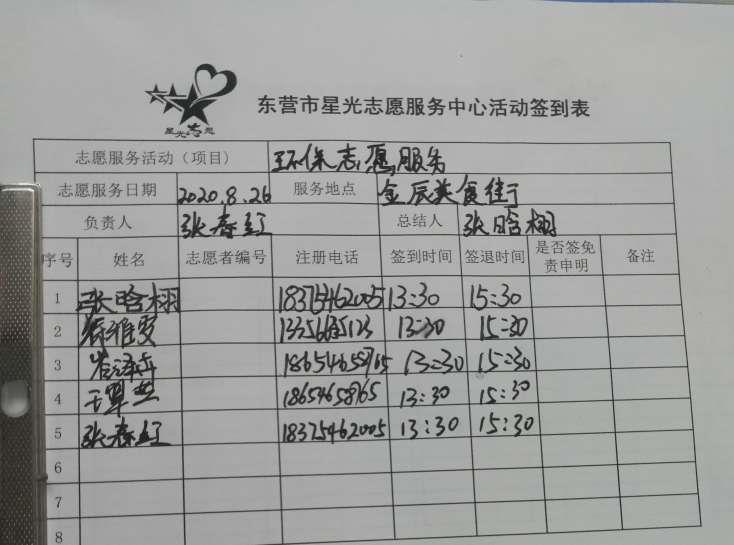 星光志愿
东营市星光志愿服务中心活动签到表
志愿服务活动（项目） 环保志愿服务
志愿服务日期 2020.8.26 服务地点 金辰美食街
负责人 张春红 总结人 张晗栩
序号 姓名 志愿者编号 注册电话 签到时间 签退时间 是否签免责申明 备注
1 张晗栩 18375462005 13:30 15:30
2 13:30 15:30
3 18654658765 13:30 15:30
4 18654658765 13:30 15:30
5 张春红 18375462005 13:30 15:30
6
7
8